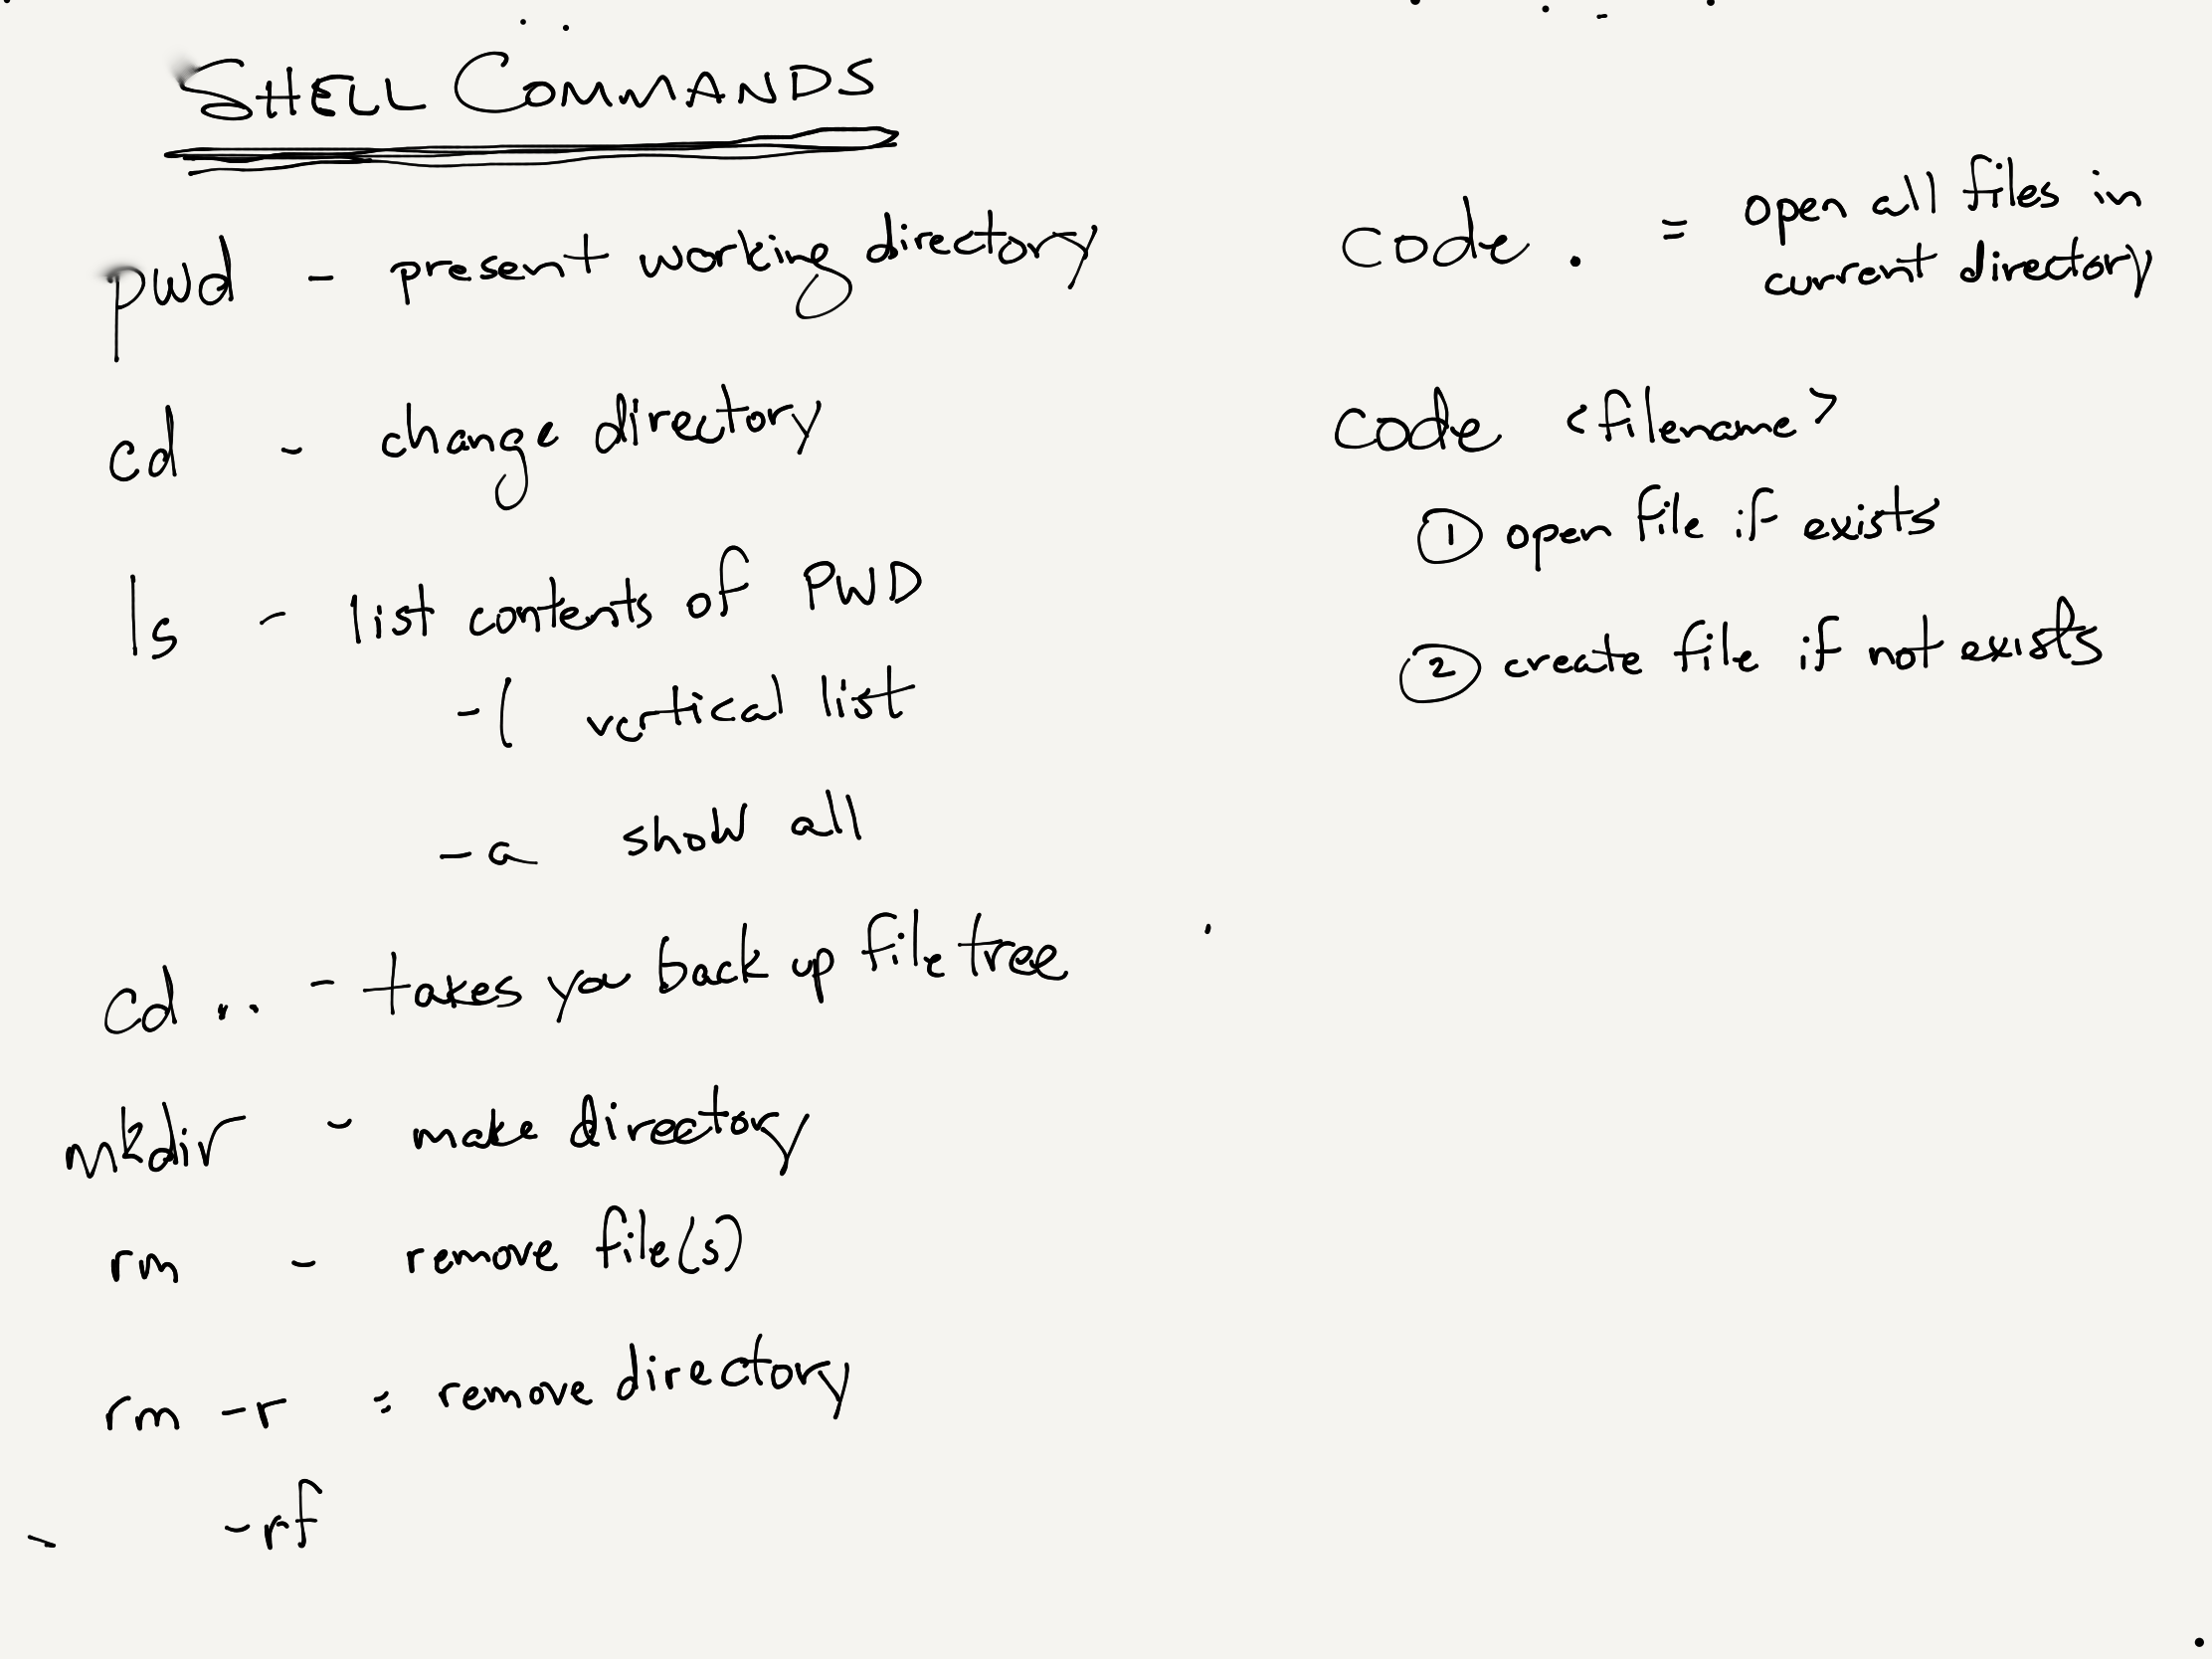 SHELL COMMANDS
pwd - present working directory
cd - change directory
ls - list contents of PWD
-l vertical list
-a show all
cd .. - takes you back up file tree
mkdir - make directory
rm - remove file(s)
rm -r = remove directory
-rf
code . = open all files in
current directory
code <filename>
① open file if exists
② create file if not exists